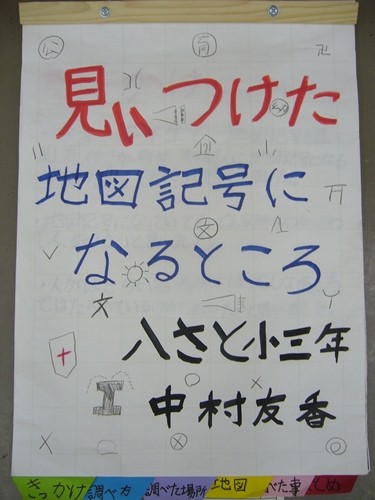 見ぃつけた
地図記号に
なるところ
八さと小三年
中村友香
きっかけ 調べ方 調べた場所 地図